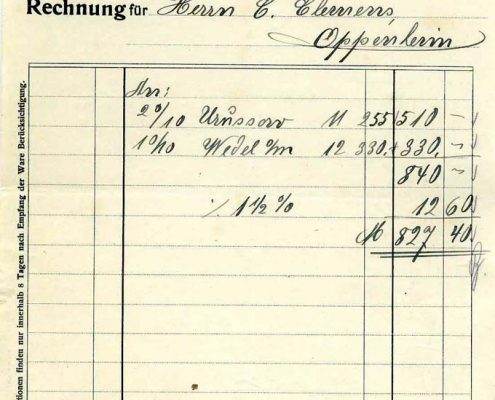 Rechnung für Herrn C. Clemens,
Oppenheim
An:
2 0/10 Urussow 11 255 510 –
1 0/10 Wedel 12 330. 330. –
840 –
% 1 ½ % 12 60
M 827 40
tionen finden nur innerhalb 8 Tagen nach Empfang der Ware Berücksichtigung.